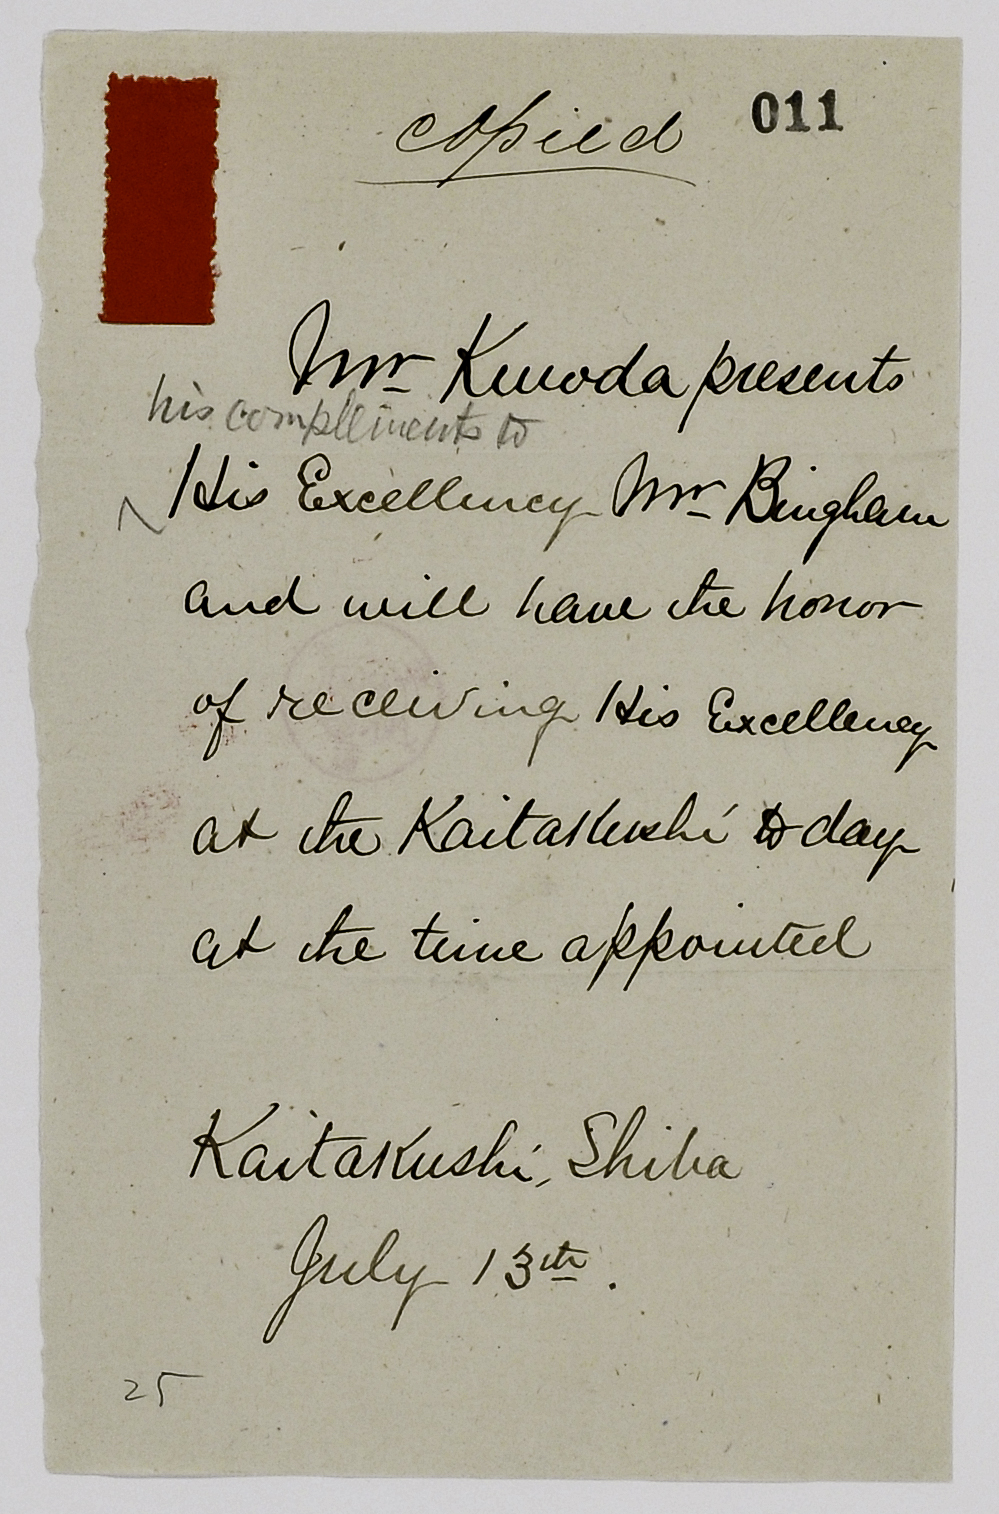 copied 011
Mr Kuroda presents
his compliments to
His Excellency Mr Bingham
and will have the honor
of receiving His Excellency
at the Kaitakushi to day
at the time appointed
Kaitakushi, Shiba
July 13th.
25